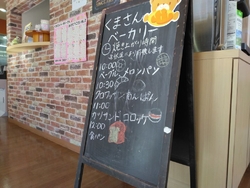 くまさん
ベーカリー
焼き上がり時間
10:00〜
ベーグル、メロンパン
10:30〜
クロワッサン、あんぱん
11:00
カツサンド コロッケ
12:00
食パン